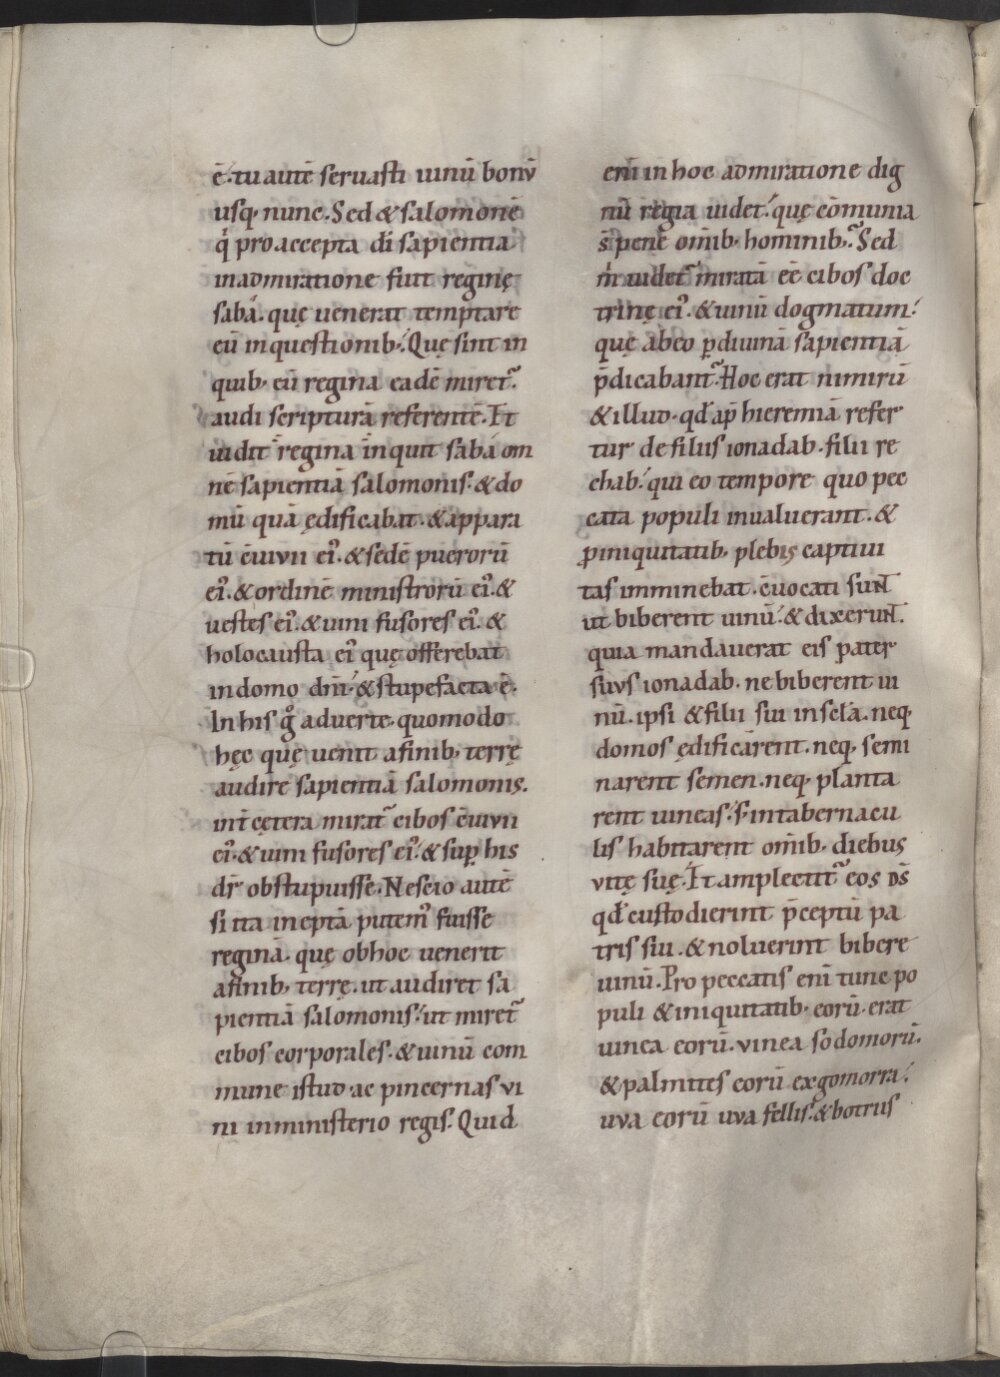 ē. tu autē seruasti uinū bonū
usq; nunc. Sed & salomonē
q̇ pro accepta di͞ sapientia
in admiratione fuit reginę
sabá. quę uenerat temptare
eū in questionib;. Quę sint in
quib; eū regina eadē miret᷑.
audi scripturā referentē. Et
uidit regina inquit sabá om
nē sapientiā salomonis. & do
mū quā ędificabat. & appara
tū c̄uiuii ei᾽. & sedē puerorū
ei᾽. & ordinē ministrorū ei᾽. &
uestes ei᾽. & uini fusores ei᾽. &
holocausta ei᾽ quę offerebat
in domo dn̄i. & stupefacta ē.
In his gͦ aduerte. quomodo
hęc quę uenit a finib; terrę
audire sapientiā salomonis.
int̄ cętera mirat᷑ cibos c̄uiuii
ei᾽. & uini fusores ei᾽. & sup̱ his
dr̄ obstupuisse. Nescio autē
si ita ineptā putem᾽ fuisse
reginā. quę ob hoc uenerit
a finib; terrę. ut audiret sa
pientiā salomonis. ut miret᷑
cibos corporales. & uinū com
mune istud. ac pincernas ui
ni in ministerio regis. Quid
eni͞ in hoc admiratione dig
nū regia uidet. quę cōmunia
s̄ pene om̄ib; hominib;. Sed
m̍ uidet᷑ miratā eē cibos doc
trinę ei᾽. & uinū dogmatum.
quę ab eo p̱ diuinā sapientiā
p̄dicabant᷑. Hoc erat nimirū
& illud. qđ ap̄ hieremiā refer
tur de filiis ionadab. filii re
chab. qui eo tempore quo pec
cata populi inualuerant. &
ꝓ iniquitatib; plebis captiui
tas imminebat. euocati suNT
ut biberent uinū. & dixeruNT.
quia mandauerat eis pater
suus ionadab. ne biberent ui
nū. ipsi & filii sui in sclā. neq;
domos ędificarent. neq; semi
narent semen. neq; planta
rent uineas. s; in tabernacu
lis habitarent om̄ib; diebus
uitę suę. Et amplectit᷑ eos ds̄
qđ custodierint p̄ceptū pa
tris sui. & noluerint bibere
uinū. Pro peccatis eni͞ tunc po
puli & iniquitatib; eorū. erat
uinea eorū. uinea sodomorū.
& palmites eorū ex gomorra.
uva eorū uva fellis. & botrus